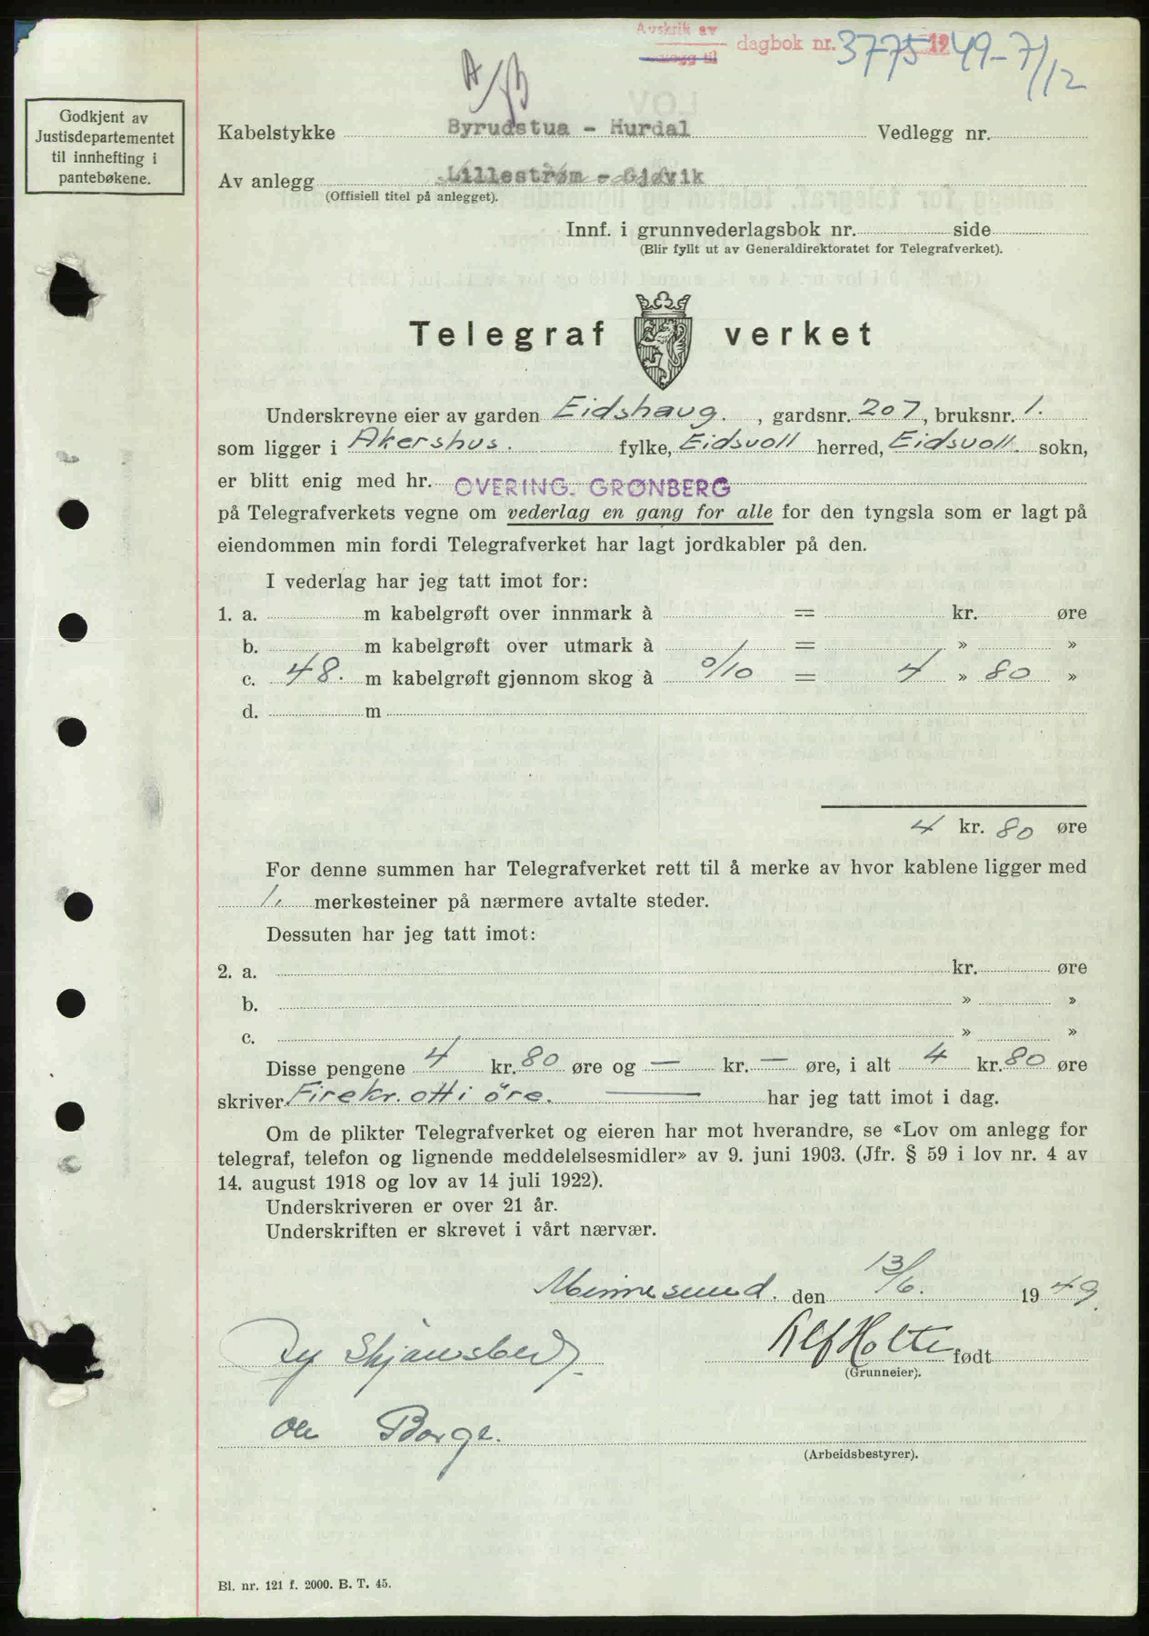 Avskrift av
dagbok nr. 3775 1949-7/12
Godkjent av
Justisdepartementet
til innhefting i
pantebøkene.
Kabelstykke Byrudstua - Hurdal Vedlegg nr.
Av anlegg Lillestrøm - Gjøvik
(Offisiell titel på anlegget).
Innf. i grunnvederlagsbok nr. side
(Blir fyllt ut av Generaldirektoratet for Telegrafverket).
Telegraf verket
Underskrevne eier av garden Eidshaug. , gardsnr. 207, bruksnr. 1.
som ligger i Akershus. fylke, Eidsvoll herred, Eidsvoll. sokn,
er blitt enig med hr. OVERING. GRØNBERG
på Telegrafverkets vegne om vederlag en gang for alle for den tyngsla som er lagt på
eiendommen min fordi Telegrafverket har lagt jordkabler på den.
I vederlag har jeg tatt imot for:
1. a. m kabelgrøft over innmark à = kr. øre
b. m kabelgrøft over utmark à = » »
c. 48. m kabelgrøft gjennom skog à 0/10 = 4 » 80 »
d. m
4 kr. 80 øre
For denne summen har Telegrafverket rett til å merke av hvor kablene ligger med
1. merkesteiner på nærmere avtalte steder.
Dessuten har jeg tatt imot:
2. a. kr. øre
b. » »
c. » »
Disse pengene 4 kr. 80 øre og — kr. — øre, i alt 4 kr. 80 øre
skriver Firekr. otti öre. — har jeg tatt imot i dag.
Om de plikter Telegrafverket og eieren har mot hverandre, se «Lov om anlegg for
telegraf, telefon og lignende meddelelsesmidler» av 9. juni 1903. (Jfr. § 59 i lov nr. 4 av
14. august 1918 og lov av 14 juli 1922).
Underskriveren er over 21 år.
Underskriften er skrevet i vårt nærvær.
Minnesund. den 13/6. 1949.
Alf Holte født
(Grunneier).
Ole Borge.
(Arbeidsbestyrer).
Bl. nr. 121 f. 2000. B. T. 45.